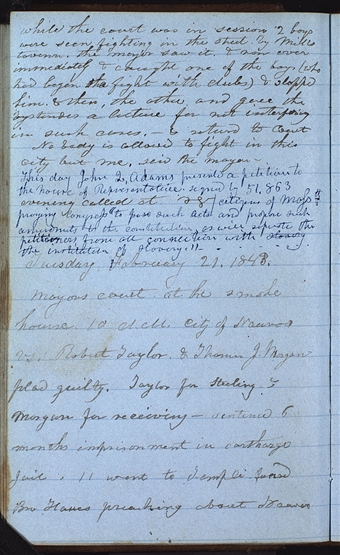 while the court was in session 2 boys
were seen fighting in the street by Mills
tavern. the mayor saw it. & run over
immediately & caught one of the boys. (who
had begun the fight with clubs) & stopped
him. & then, the other and gave the
bystanders a lecture for not interfering
in such cases. — & return to court
No body is allowed to fight in this
city but me, said the mayor—
This day John Q. Adams presented a petition to
the house of Representatives signed by 51,863
evening called at citizens of Mass
praying Congress to pass such acts and propose such
amendments to the constitution, as will separate the
petitioners from all connection with slavery
the institution of slavery".
Tuesday, February 21. 1843.
Mayors court at the smoke
house. 10 A M. City of Nauvoo
vs. Robert Taylor & Thomas J. Morgan
plead guilty. Taylor for stealing. &
Morgan for receiving — sentence 6
months imprisonment in carthage
Jail. 11 went to Temple found
Bro Haws preaching about Nauvoo